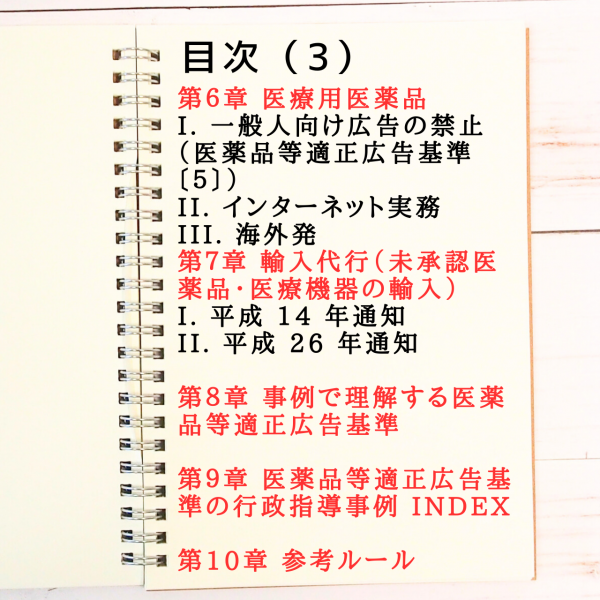 目次（3）
第6章 医療用医薬品
I. 一般人向け広告の禁止
（医薬品等適正広告基準
〔5〕）
II. インターネット実務
III. 海外発
第7章 輸入代行（未承認医
薬品・医療機器の輸入）
I. 平成 14 年通知
II. 平成 26 年通知
第8章 事例で理解する医薬
品等適正広告基準
第9章 医薬品等適正広告基
準の行政指導事例 INDEX
第10章 参考ルール